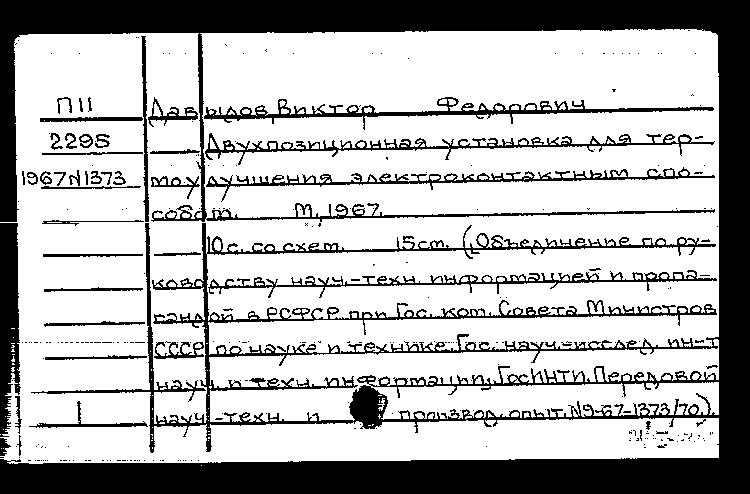 П11 Давыдов, Виктор Федорович
2295 Двухпозиционная установка для тер-
1967N1373 моулучшения электроконтактным спо-
собом. М, 1967.
10с. со схем. 15см. (Объединение по ру-
ководству науч.-техн. информацией и пропа-
гандой в РСФСР при Гос. ком. Совета Министров
СССР по науке и технике. Гос. науч-исслед. ин-т
науч. и техн. информации. ГосИНТИ. Передовой
1 науч-техн. и производ. опыт. N9-67-1373/70.).